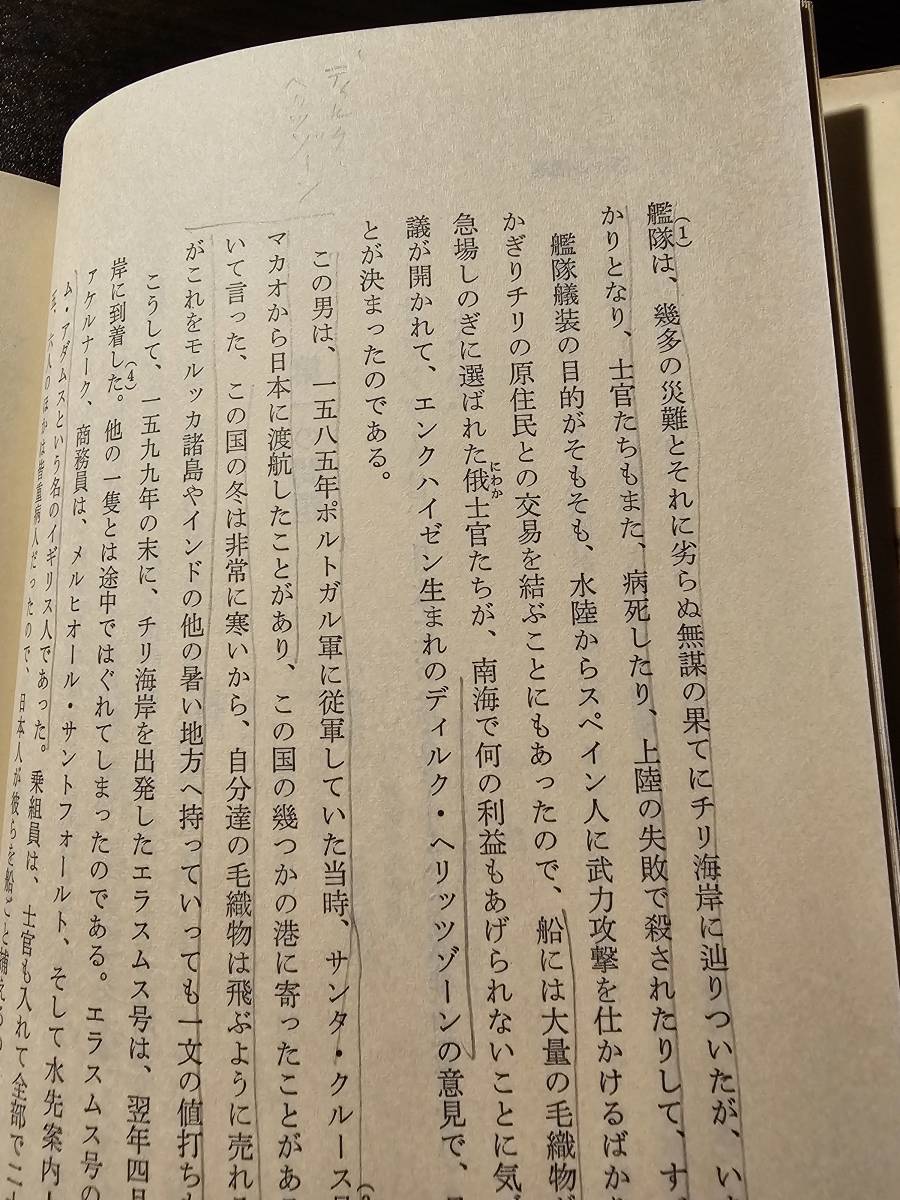 ディルク・
ヘリッツゾーン
(1)
艦隊は、幾多の災難とそれに劣らぬ無謀の果てにチリ海岸に辿りついたが、い
かりとなり、士官たちもまた、病死したり、上陸の失敗で殺されたりして、す
艦隊艤装の目的がそもそも、水陸からスペイン人に武力攻撃を仕かけるばか
かぎりチリの原住民との交易を結ぶことにもあったので、船には大量の毛織物が
急場しのぎに選ばれた俄士官たちが、南海で何の利益もあげられないことに気づ
にわか
議が開かれて、エンクハイゼン生まれのディルク・ヘリッツゾーンの意見で、
とが決まったのである。
この男は、一五八五年ポルトガル軍に従軍していた当時、サンタ・クルース号
マカオから日本に渡航したことがあり、この国の幾つかの港に寄ったことがあ
いて言った、この国の冬は非常に寒いから、自分達の毛織物は飛ぶように売れる
がこれをモルッカ諸島やインドの他の暑い地方へ持っていっても一文の値打ちも
こうして、一五九九年の末に、チリ海岸を出発したエラスムス号は、翌年四月
岸に到着した。他の一隻とは途中ではぐれてしまったのである。エラスムス号の
(4)
アケルナーク、商務員は、メルヒオール・サントフォールト、そして水先案内
ム・アダムスという名のイギリス人であった。乗組員は、士官も入れて全部で二
六人のほかは皆重病人だったので、日本人が彼らを船ごと捕える